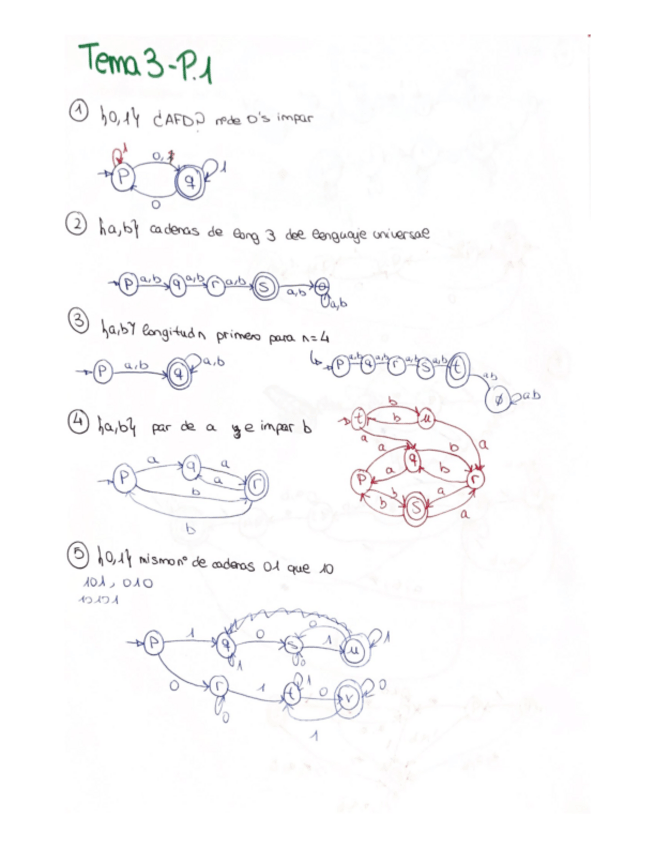 Tema 3-P.1
① {0,1} ¿AFD? nºde 0's impar
1 0,1 1
P q
0
② {a,b} cadenas de long 3 del lenguaje universal
P a,b q a,b r a,b S a,b ø
a,b
③ {a,b} longitud n primero para n=4
P a,b q a,b
P a,b q a,b r a,b S a,b t a,b ø a,b
④ {a,b} par de a y e impar b
P a q a r
a
b
b
t b u
b
a a
a q b
P a b r
b b S a
a
⑤ {0,1} mismo nº de cadenas 01 que 10
101, 010
10101
P 1 q 0 s 1 u 1
0
1 0
0 r 1 t 0 v 0
0 1
1